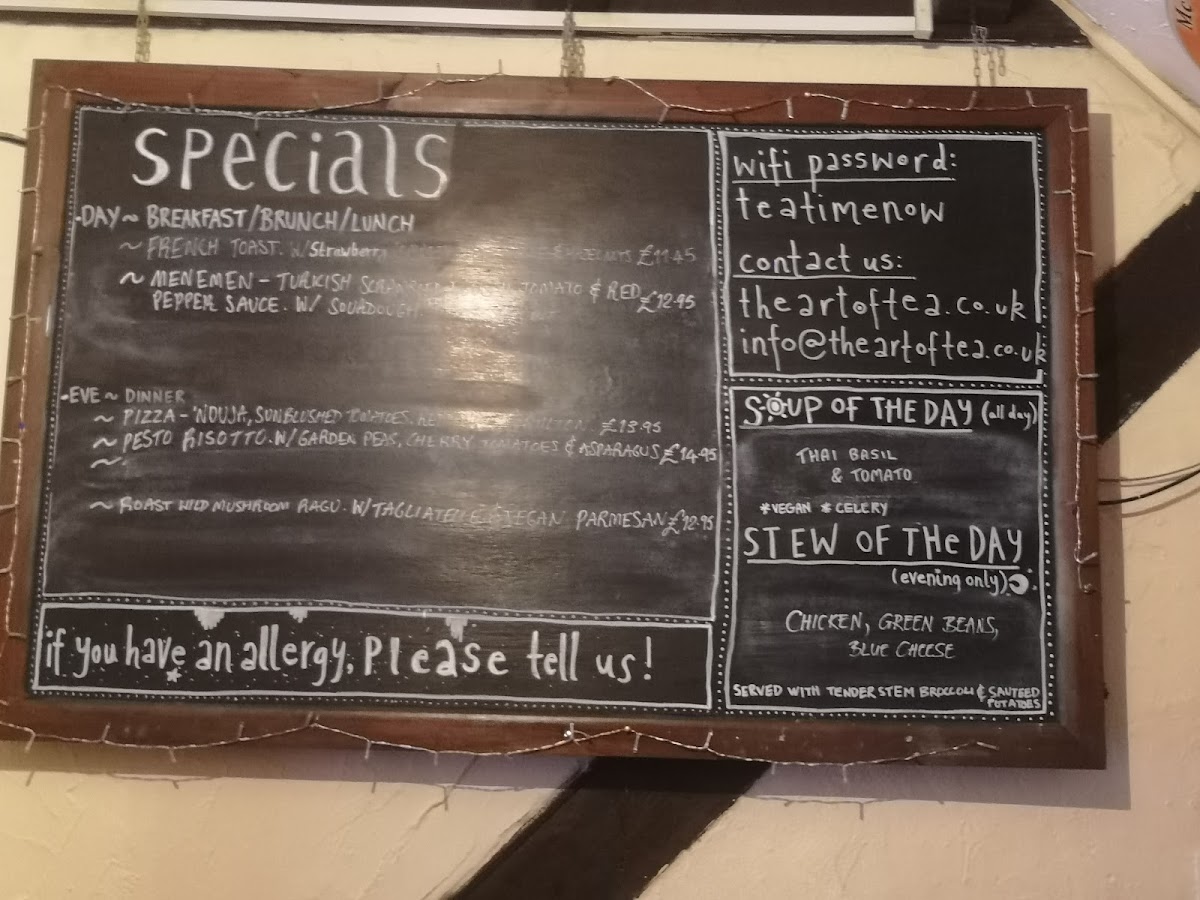 Specials
-DAY ~ BREAKFAST/BRUNCH/LUNCH
~ FRENCH TOAST. W/ Strawberry £11.45
~ MENEMEN - TURKISH TOMATO & RED
PEPPER SAUCE. W/ SOURDOUGH £12.95
-EVE ~ DINNER
~ PIZZA - 'NOUJA, SUNBLUSHED TOMATOES, £13.95
~ PESTO RISOTTO. W/ GARDEN PEAS, CHERRY TOMATOES & ASPARAGUS £14.95
~
~ ROAST WILD MUSHROOM RAGU. W/ TAGLIATELLE PARMESAN £12.95
if you have an allergy, Please tell us!
wifi password:
teatimenow
contact us:
theartoftea.co.uk
info@theartoftea.co.uk
SOUP OF THE DAY (all day)
THAI BASIL
& TOMATO
*VEGAN *CELERY
STEW OF THe DAY
(evening only)
CHICKEN, GREEN BEANS,
BLUE CHEESE
SERVED WITH TENDERSTEM BROCCOLI & SAUTEED
POTATOES
Mc